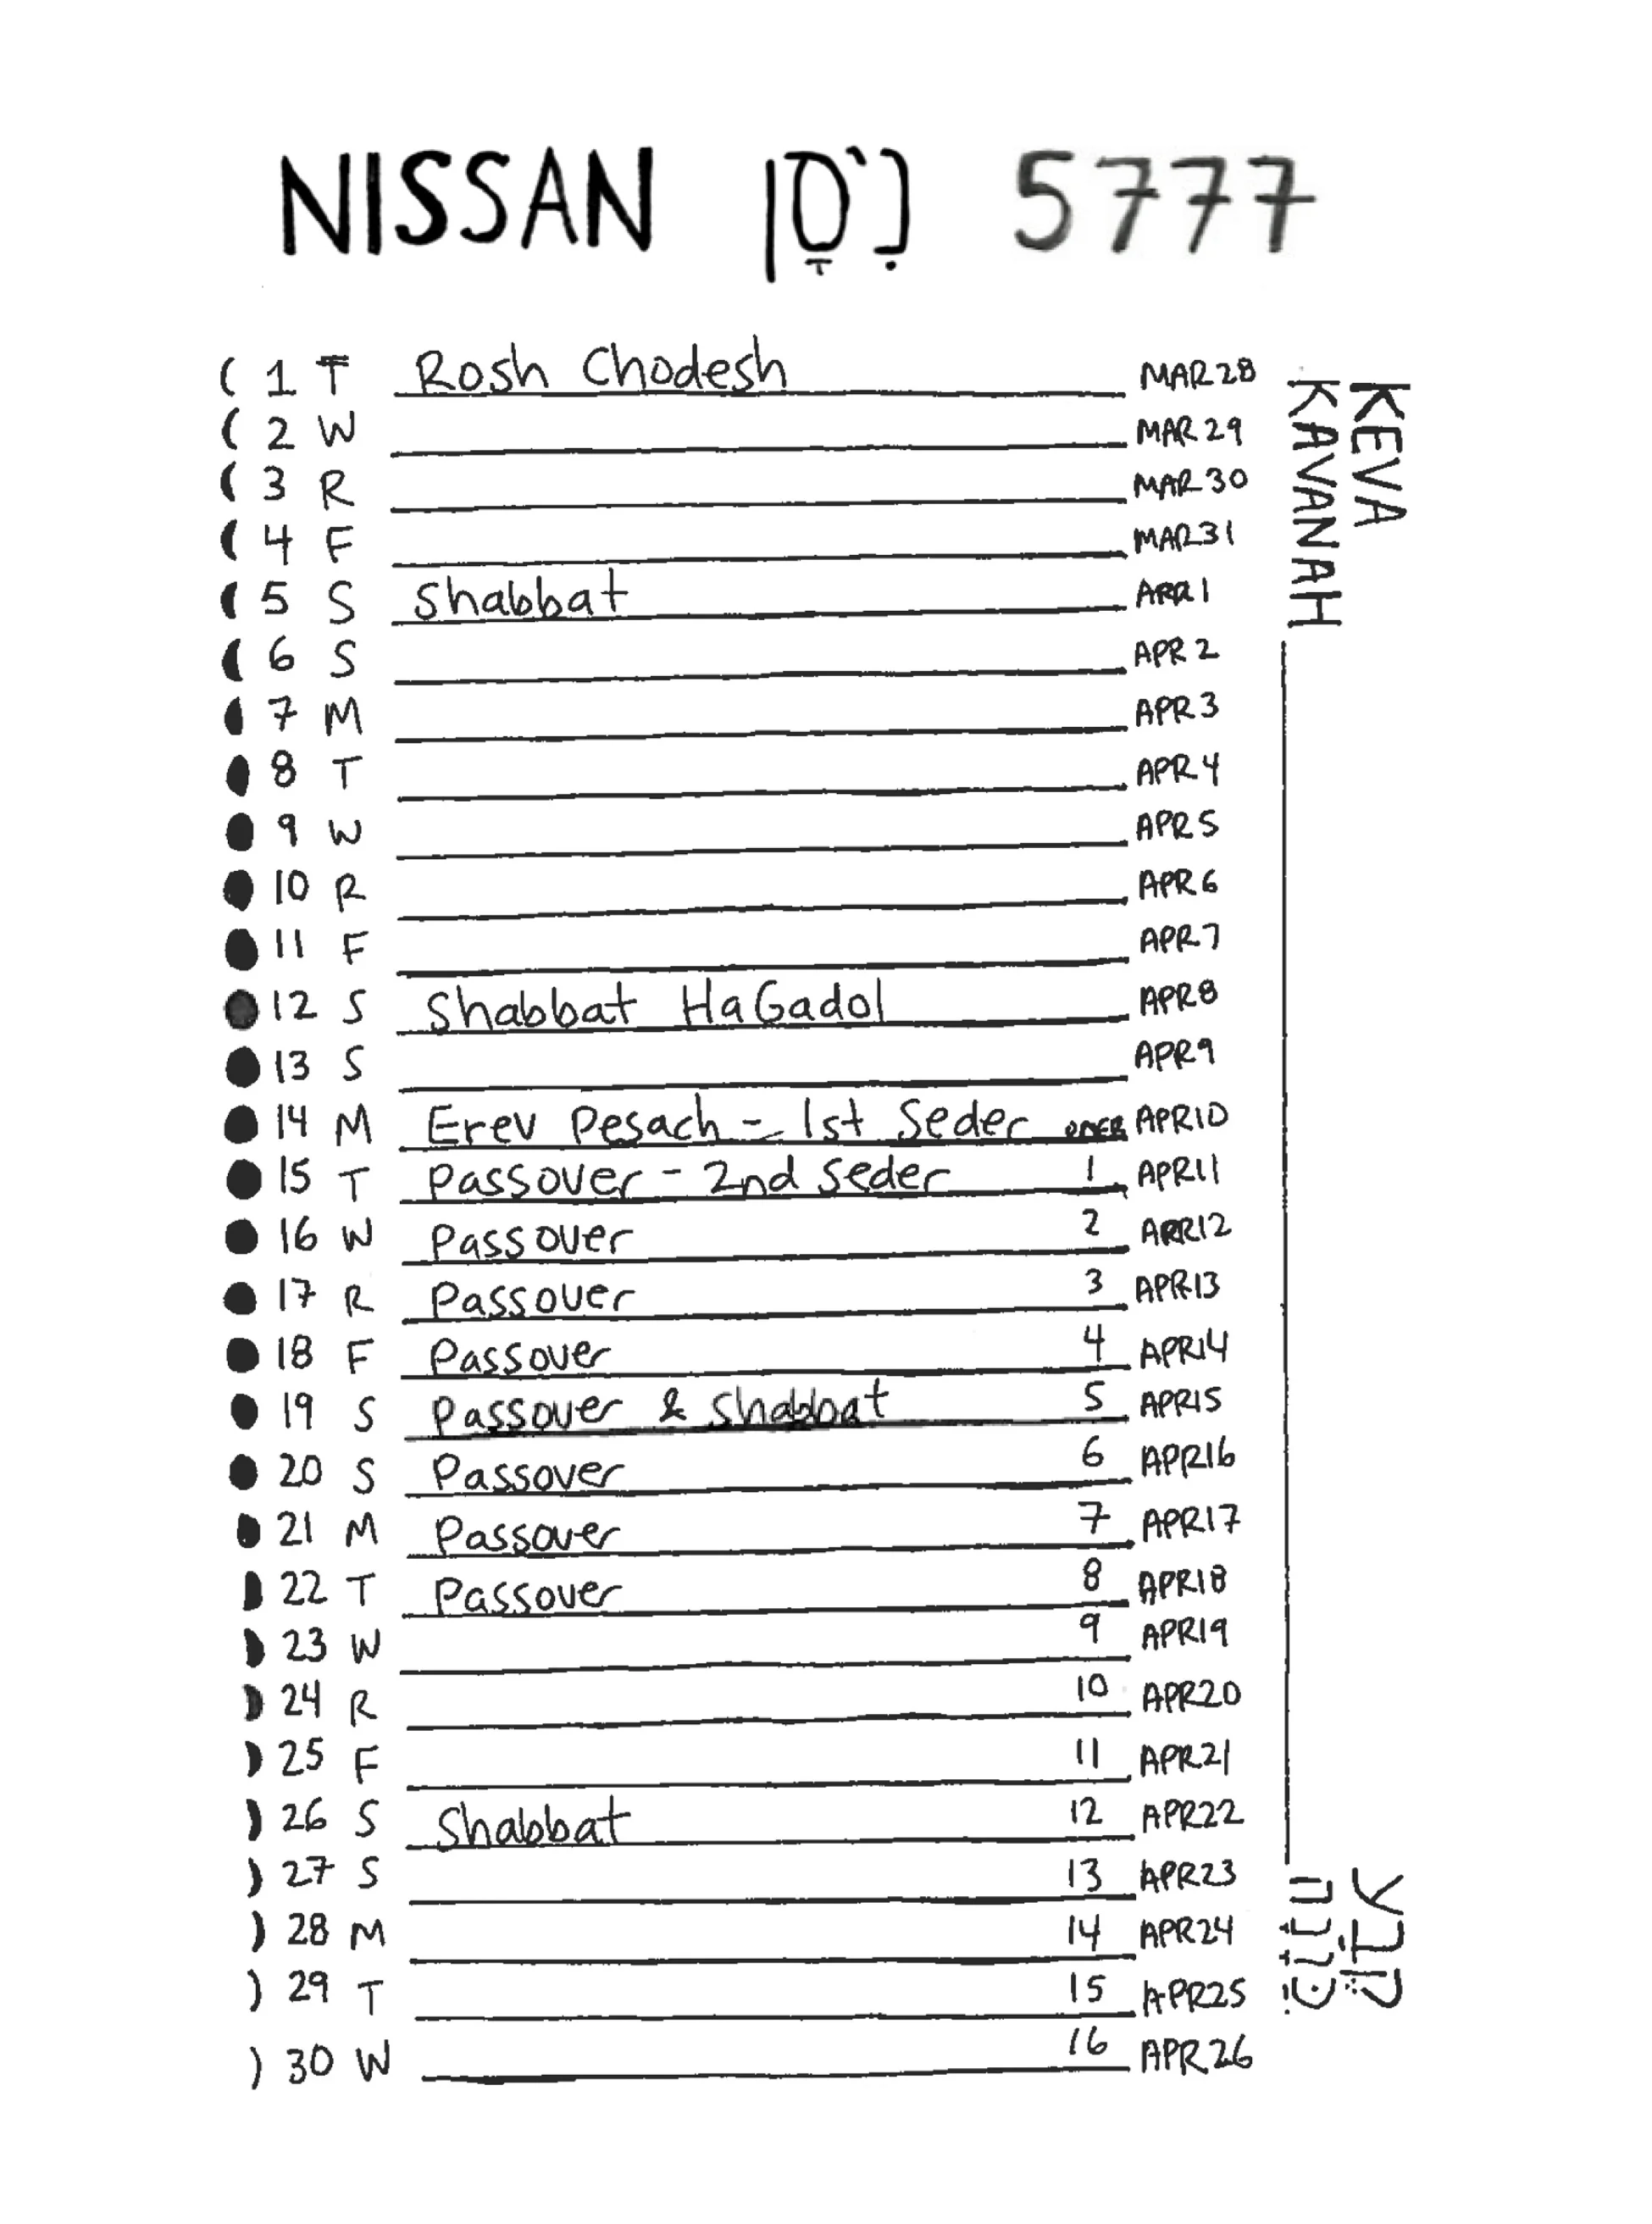 NISSAN נִיסָן 5777
1 T Rosh Chodesh MAR 28
2 W MAR 29
3 R MAR 30
4 F MAR 31
5 S Shabbat APR 1
6 S APR 2
7 M APR 3
8 T APR 4
9 W APR 5
10 R APR 6
11 F APR 7
12 S Shabbat HaGadol APR 8
13 S APR 9
14 M Erev Pesach - 1st Seder OMER APR 10
15 T Passover - 2nd Seder 1 APR 11
16 W Passover 2 APR 12
17 R Passover 3 APR 13
18 F Passover 4 APR 14
19 S Passover & Shabbat 5 APR 15
20 S Passover 6 APR 16
21 M Passover 7 APR 17
22 T Passover 8 APR 18
23 W 9 APR 19
24 R 10 APR 20
25 F 11 APR 21
26 S Shabbat 12 APR 22
27 S 13 APR 23
28 M 14 APR 24
29 T 15 APR 25
30 W 16 APR 26
KEVA
KAVANAH
קֶבַע
כַּוָּנָה